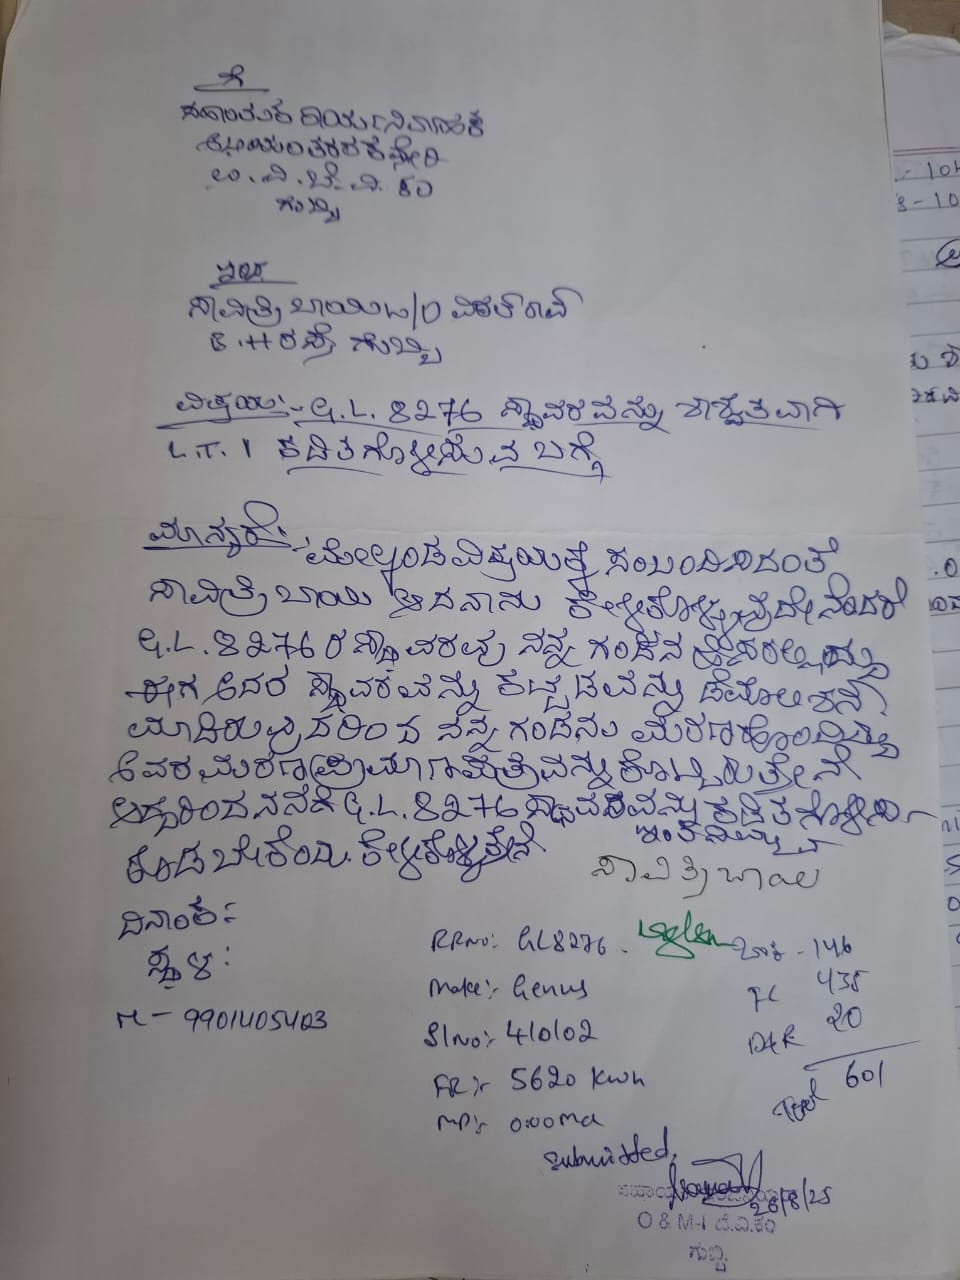 ಗೆ
ಸಹಾಯಕ ಕಾರ್ಯನಿರ್ವಾಹಕ
ಕಛೇರಿ
ಬೆ.ವಿ.ಕಂ
ಗುಬ್ಬಿ
ಇಂದ
ಸಾವಿತ್ರಿ ಬಾಯಿ W/O ವಿಠಲ್ ರಾವ್
B.H ರಸ್ತೆ ಗುಬ್ಬಿ
ವಿಷಯ:- G.L. 8276 ಸ್ಥಾವರವನ್ನು ಶಾಶ್ವತವಾಗಿ
L.T. 1 ಕಡಿತಗೊಳ್ಳಿಸುವ ಬಗ್ಗೆ
ಮಾನ್ಯರೆ:- ಮೇಲ್ಕಂಡ ವಿಷಯಕ್ಕೆ ಸಂಬಂದಿಸಿದಂತೆ
ಸಾವಿತ್ರಿ ಬಾಯಿ ಆದ ನಾನು ಕೇಳಿಕೊಳ್ಳುವುದೇನೆಂದರೆ
G.L. 8276 ರ ಸ್ಥಾವರವು ನನ್ನ ಗಂಡನ ಹೆಸರಲ್ಲಿದ್ದು
ಈಗ ಅದರ ಸ್ಥಾವರವನ್ನು ಕಟ್ಟಡವನ್ನು ಡೆಮೋಲಿಶನ್
ಮಾಡಿರುವುದರಿಂದ ನನ್ನ ಗಂಡನು ಮರಣಹೊಂದಿದ್ದು
ಅವರ ಮರಣ ಪ್ರಮಾಣ ಪತ್ರವನ್ನು ಕೊಟ್ಟಿರುತ್ತೇನೆ
ಆದ್ದರಿಂದ ನನಗೆ G.L. 8276 ಸ್ಥಾವರವನ್ನು ಕಡಿತಗೊಳ್ಳಿಸಿ
ಕೊಡಬೇಕೆಂದು ಕೇಳಿಕೊಳ್ಳುತ್ತೇನೆ ಇಂತಿ ನಿಮ್ಮ
ಸಾವಿತ್ರಿ ಬಾಯಿ
ದಿನಾಂಕ:
ಸ್ಥಳ:
M - 9901405403
RRNo:- GL8276.
Make:- Genus
SlNo:- 410102
FR:- 5620 Kwh
MD:- 0.00Ma
ಬಾಕಿ - 146
FC 435
D&R 20
Total 601
Submitted,
26/8/25
O & M-I ಬೆ.ವಿ.ಕಂ
ಗುಬ್ಬಿ.